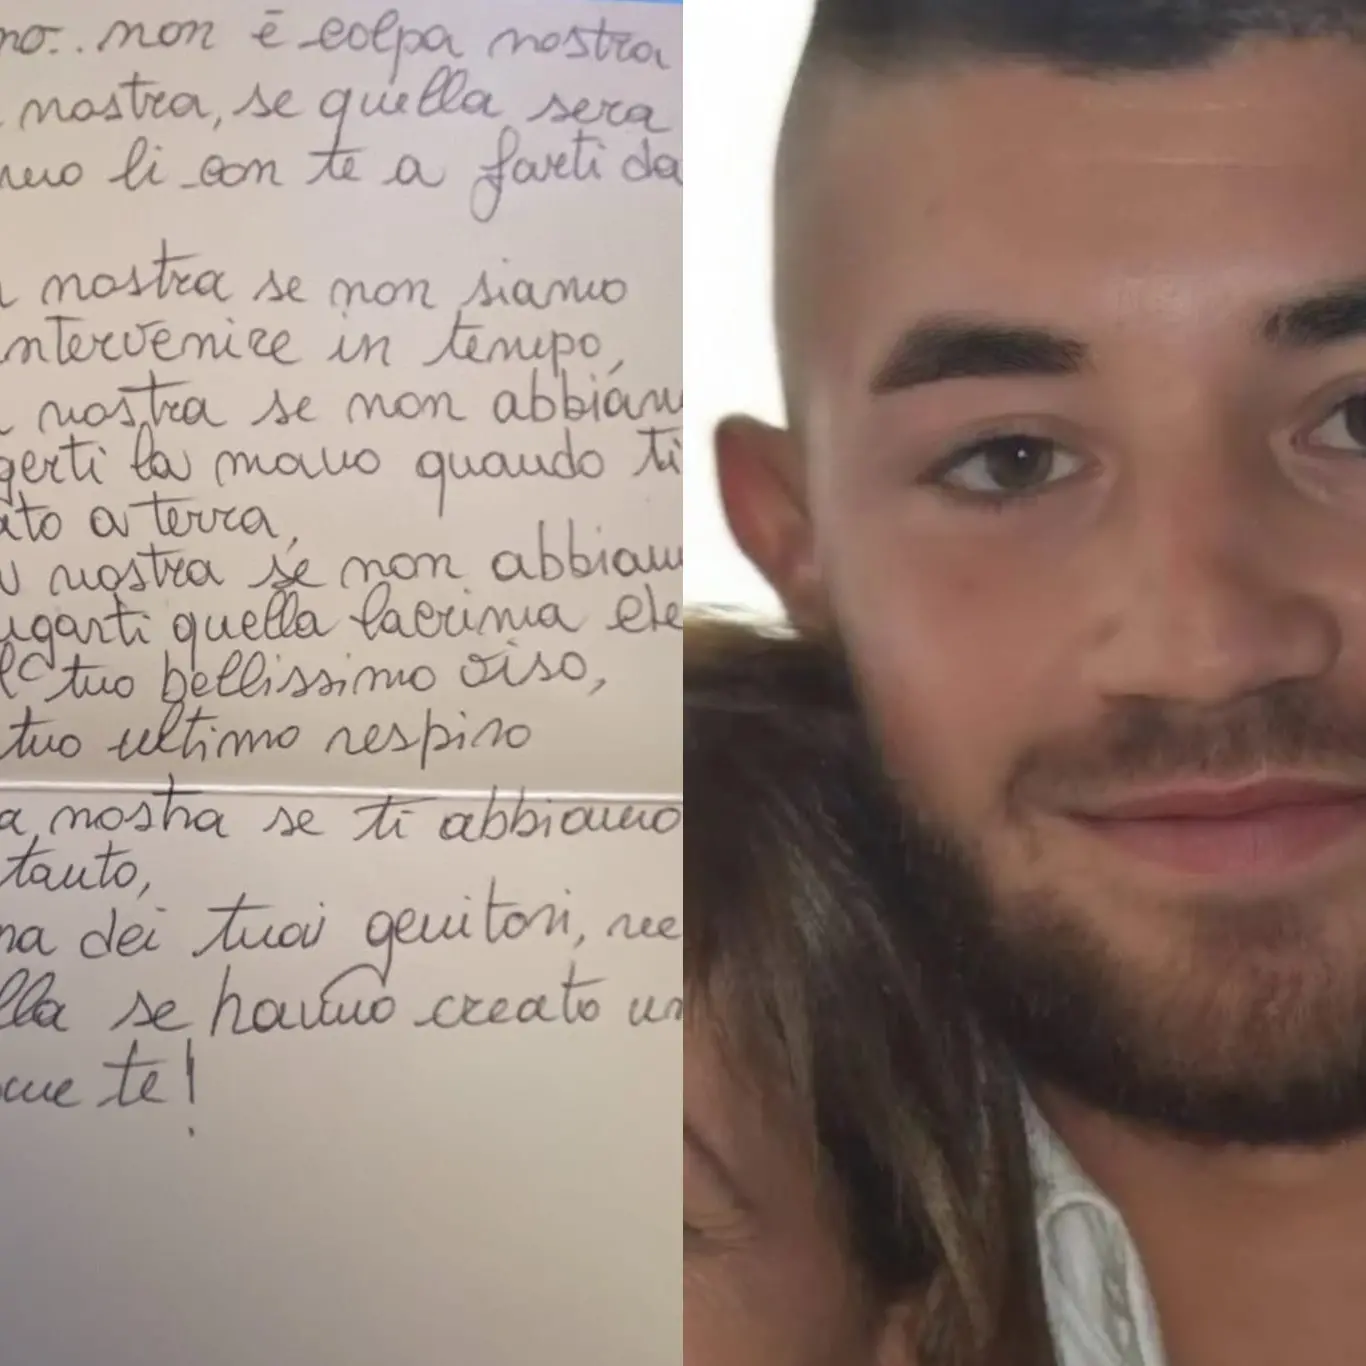 no.. non è colpa nostra
nostra, se quella sera
li con te a farti da
nostra se non siamo
intervenire in tempo,
nostra se non abbiam
gerti la mano quando ti
ato a terra,
nostra se non abbiam
ugarti quella lacrima che
tuo bellissimo viso,
tuo ultimo respiro
a nostra se ti abbiamo
tanto,
ma dei tuoi genitori, ne
lla se hanno creato un
ome te!